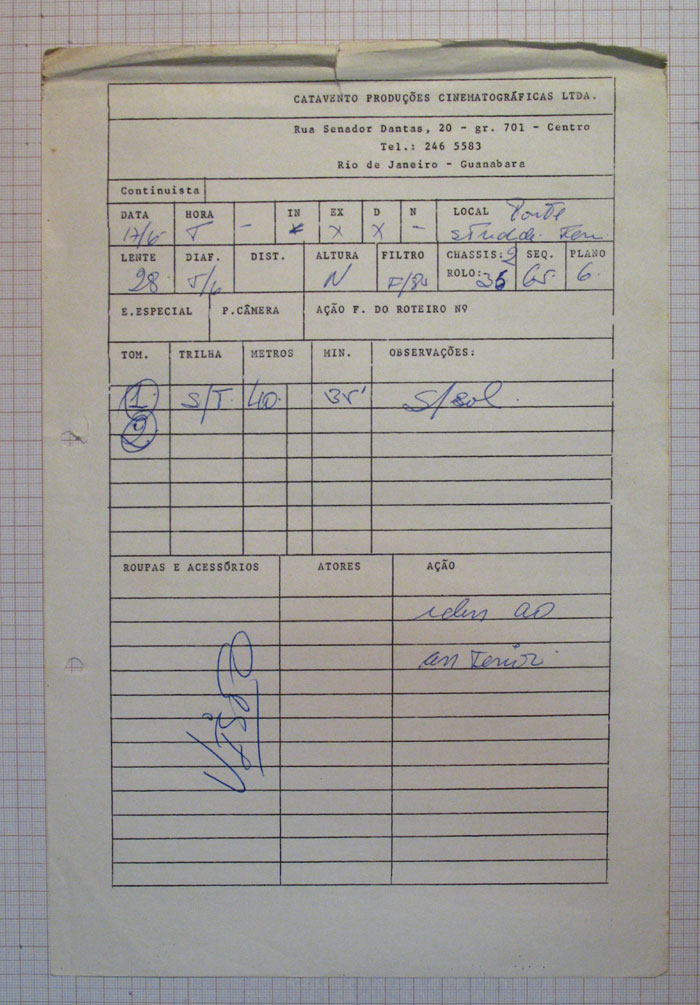 CATAVENTO PRODUÇÕES CINEMATOGRÁFICAS LTDA.
Rua Senador Dantas, 20 - gr. 701 - Centro
Tel.: 246 5583
Rio de Janeiro - Guanabara
Continuista
DATA HORA - IN EX D N LOCAL
17/6 T X X -
LENTE DIAF. DIST. ALTURA FILTRO CHASSIS: 2 SEQ. PLANO
28 N ROLO: 36 65. 6.
E.ESPECIAL P.CÂMERA AÇÃO F. DO ROTEIRO Nº
TOM. TRILHA METROS MIN. OBSERVAÇÕES:
1 S/T. 40. 35' S/sol.
2
ROUPAS E ACESSÓRIOS ATORES AÇÃO
idem ao
anterior.
VISTO